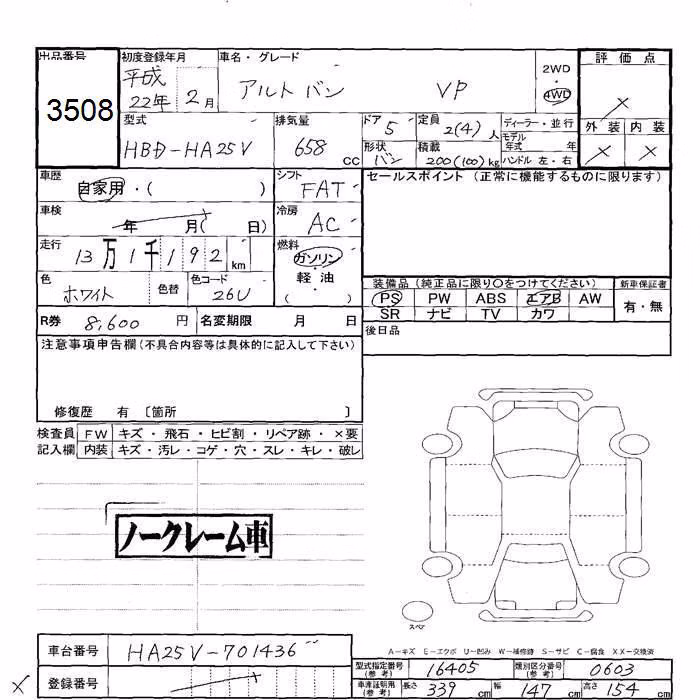 出品番号 初度登録年月 車名・グレード 評価点
3508 平成 22年 2月 アルトバン VP 2WD 4WD ×
型式 排気量 ドア 定員 ディーラー・並行 外装 内装
HBD-HA25V 658 cc 5 2(4)人 モデル年式 年 × ×
形状 バン 積載 200(100)kg ハンドル 左・右
車歴 自家用・( ) シフト FAT セールスポイント (正常に機能するものに限ります)
車検 年 月( 日) 冷房 AC
走行 13万1千192km 燃料 ガソリン
軽油
( )
色 ホワイト 色替 色コード 26U
装備品 (純正品に限り○をつけてください) 新車保証書
PS PW ABS エアB AW 有・無
SR ナビ TV カワ
R券 8,600円 名変期限 月 日 後日品
注意事項申告欄(不具合内容等は具体的に記入して下さい)
修復歴 有 〔箇所 〕
検査員 FW キズ・飛石・ヒビ割・リペア跡・×要
記入欄 内装 キズ・汚レ・コゲ・穴・スレ・キレ・破レ
ノークレーム車
スペア
A-キズ E-エクボ U-凹み W-補修跡 S-サビ C-腐食 XX-交換済
車台番号 HA25V-701436
登録番号
型式指定番号(参考) 16405 類別区分番号(参考) 0603
車庫証明用(参考) 長さ 339cm 幅 147cm 高さ 154cm
×